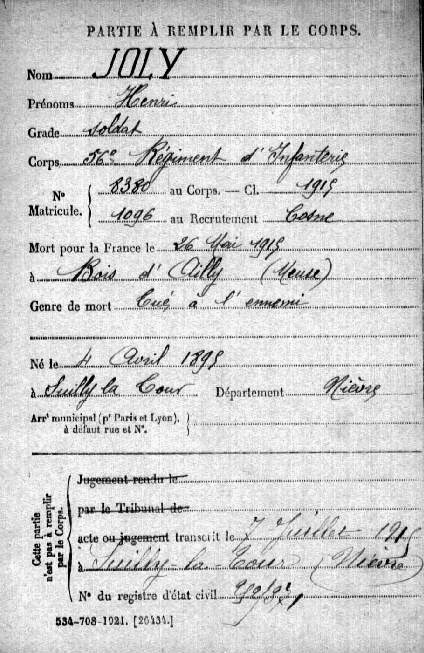 PARTIE À REMPLIR PAR LE CORPS.
Nom JOLY
Prénoms Henri
Grade soldat
Corps 56e Régiment d'Infanterie
N° Matricule. { 8380 au Corps. — Cl. 1915
1096 au Recrutement Cosne
Mort pour la France le 26 Mai 1915
à Bois d'Ailly (Meuse)
Genre de mort Tué à l'ennemi
Né le 4 Avril 1895
à Suilly la Tour Département Nièvre
Arrt municipal (pr Paris et Lyon), à défaut rue et N°. {
Cette partie n'est pas à remplir par le Corps. {
Jugement rendu le
par le Tribunal de
acte ou jugement transcrit le 7 Juillet 1915
à Suilly-la-Tour (Nièvre)
N° du registre d'état civil
534-708-1921. [26434.]